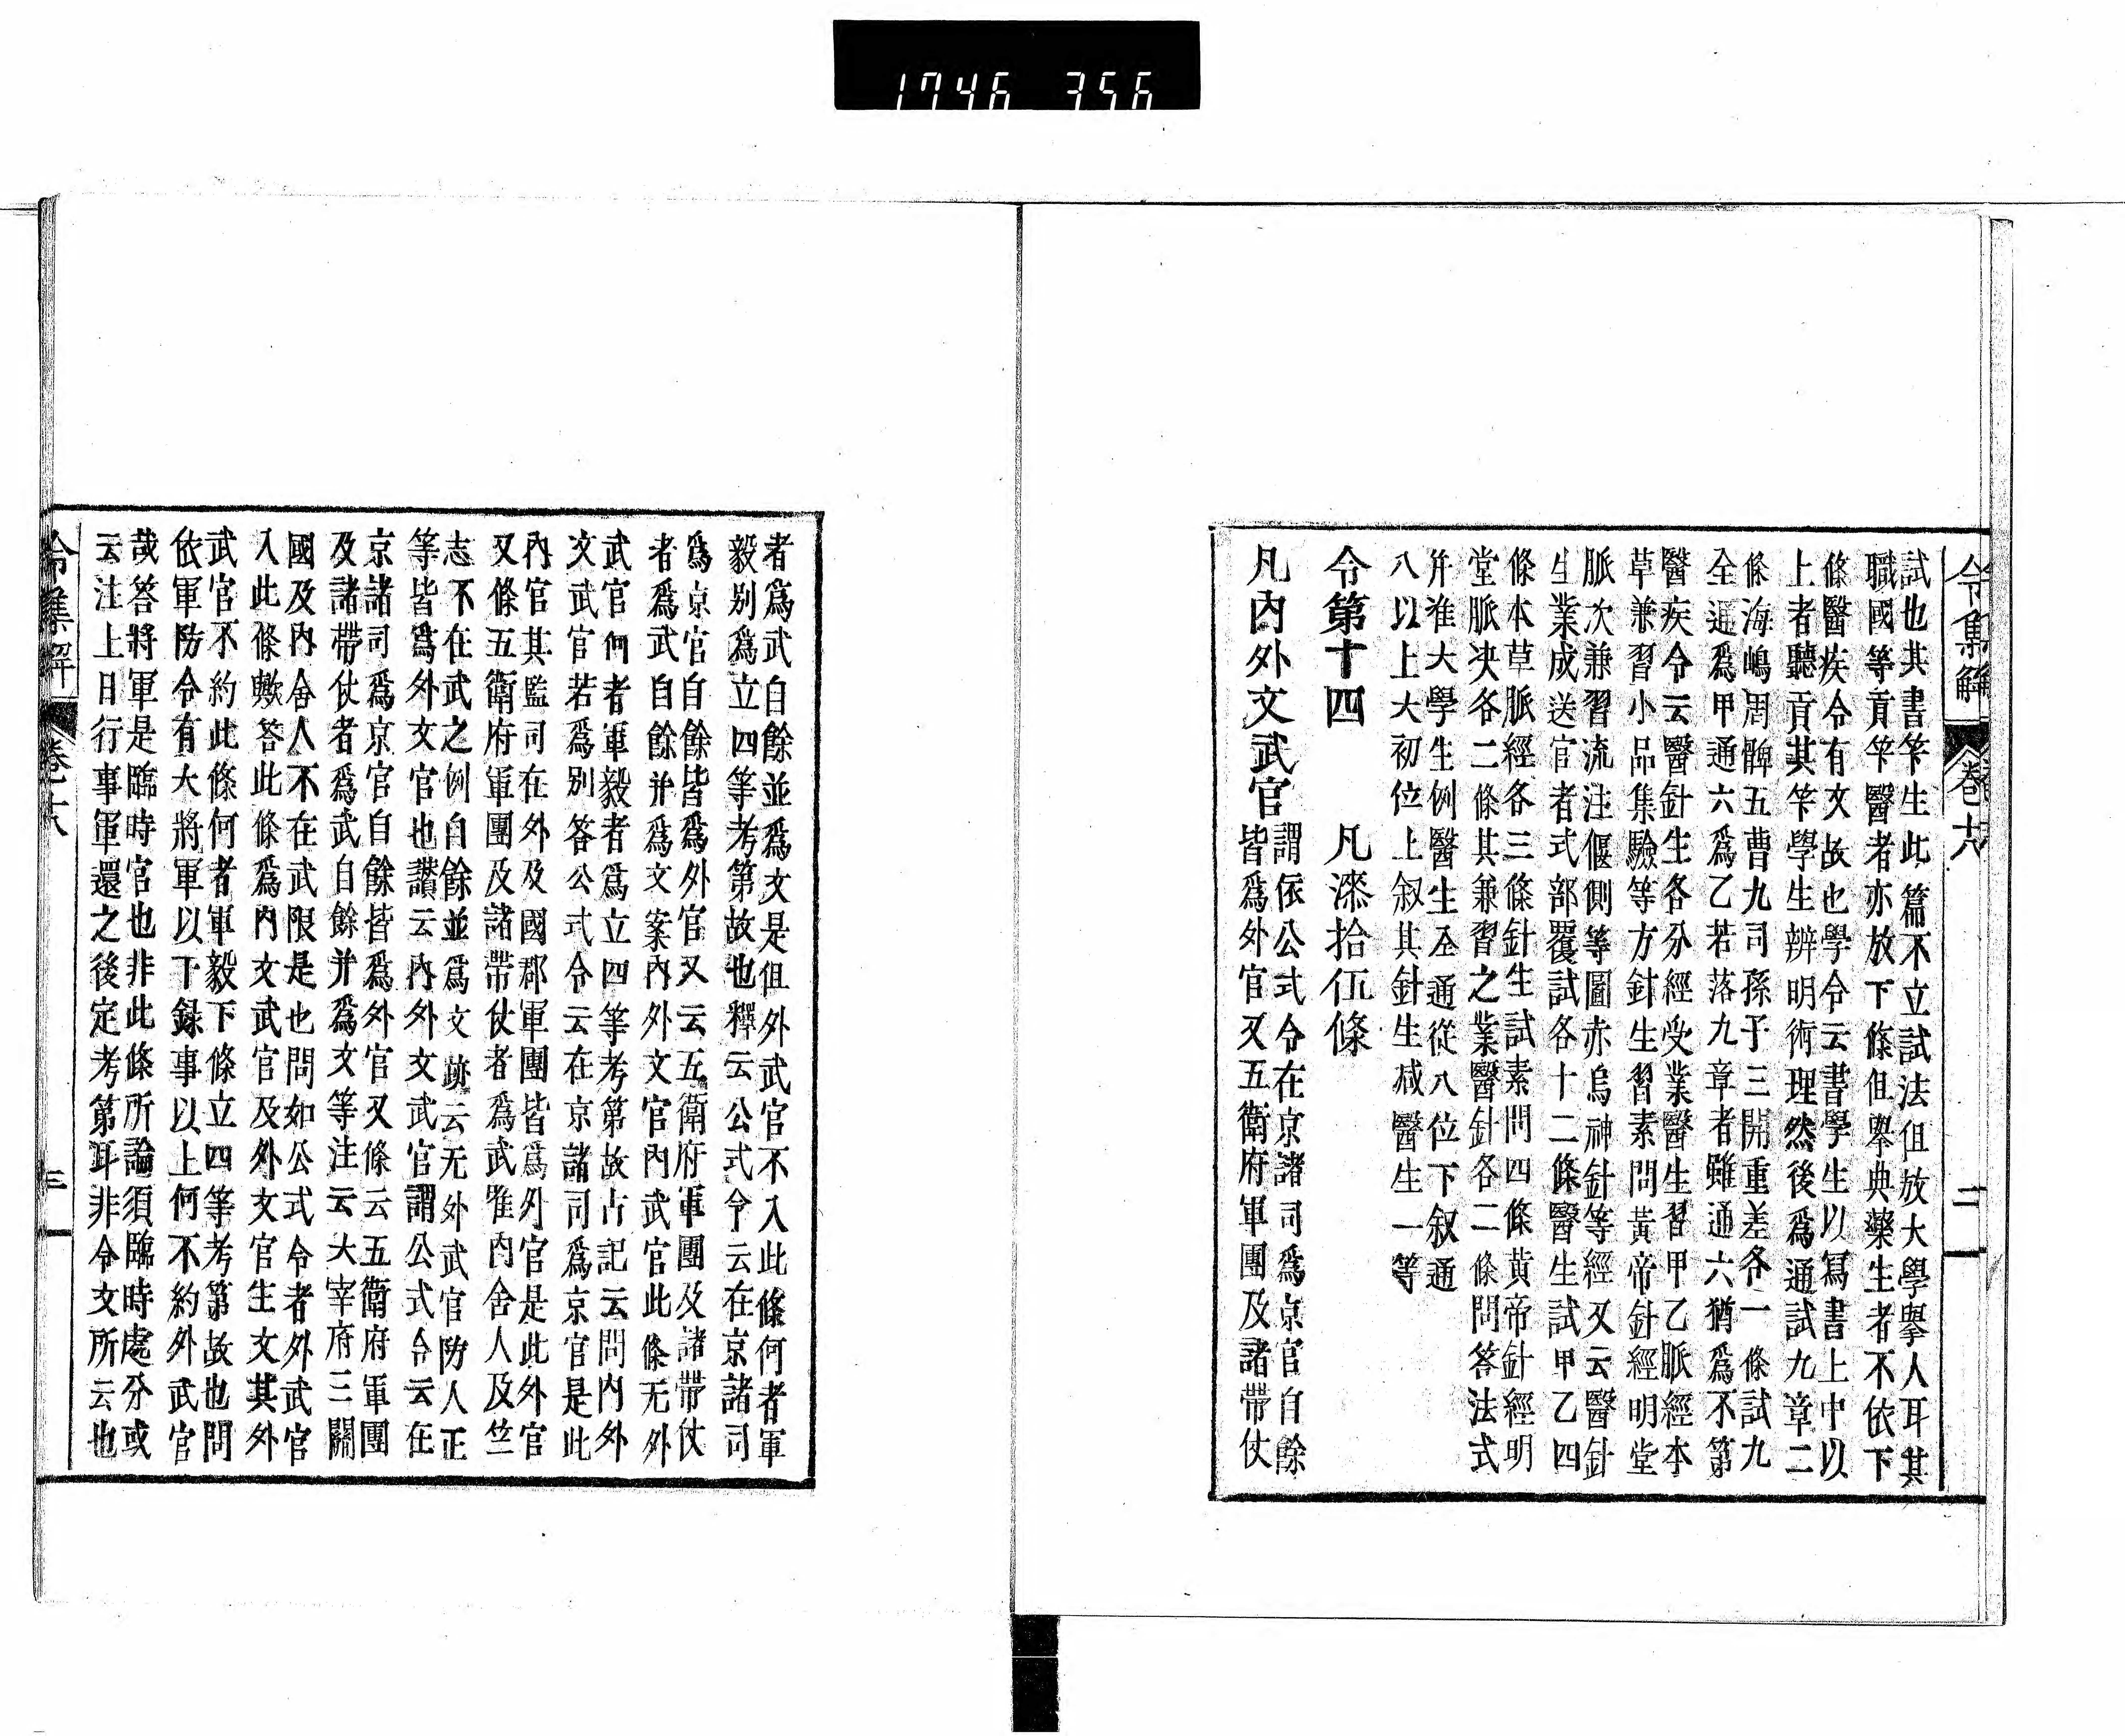 1746 356
令集解 卷十八 二
試也其書笇生此篇不立試法但放大學擧人耳其
職國等貢笇醫者亦放下條但擧典藥生者不依下
條醫疾令有文故也學令云書學生以寫書上中以
上者聽貢其笇學生辨明術理然後爲通試九章二
條海嶋周髀五曹九司孫子三開重差各一條試九
全通爲甲通六爲乙若落九章者雖通六猶爲不第
醫疾令云醫針生各分經受業醫生習甲乙脈經本
草兼習小品集驗等方針生習素問黃帝針經明堂
脈次兼習流注偃側等圖赤烏神針等經又云醫針
生業成送官者式部覆試各十二條醫生試甲乙四
條本草脈經各三條針生試素問四條黃帝針經明
堂脈决各二條其兼習之業醫針各二條問答法式
并准大學生例醫生全通從八位下叙通
八以上大初位上叙其針生减醫生一等
令第十四 凡漆拾伍條
凡內外文武官
謂依公式令在京諸司爲京官自餘
皆爲外官又五衛府軍團及諸帶仗
者爲武自餘並爲文是但外武官不入此條何者軍
毅別爲立四等考第故也釋云公式令云在京諸司
爲京官自餘皆爲外官又云五衛府軍團及諸帶仗
者爲武自餘并爲文案內外文官內武官此條无外
武官何者軍毅者爲立四等考第故占記云問內外
文武官若爲別答公式令云在京諸司爲京官是此
內官其監司在外及國郡軍團皆爲外官是此外官
又條五衛府軍團及諸帶仗者爲武唯內舍人及竺
志不在武之例自餘並爲文跡云无外武官防人正
等皆爲外文官也讚云內外文武官謂公式令云在
京諸司爲京官自餘皆爲外官又條云五衛府軍團
及諸帶仗者爲武自餘并爲文等注云大宰府三關
國及內舍人不在武限是也問如公式令者外武官
入此條歟答此條爲內文武官及外文官生文其外
武官不約此條何者軍毅下條立四等考第故也問
依軍防令有大將軍以下錄事以上何不約外武官
哉答將軍是臨時官也非此條所論須臨時處分或
云注上日行事軍還之後定考第耳非令文所云也
令集解 卷十八 三